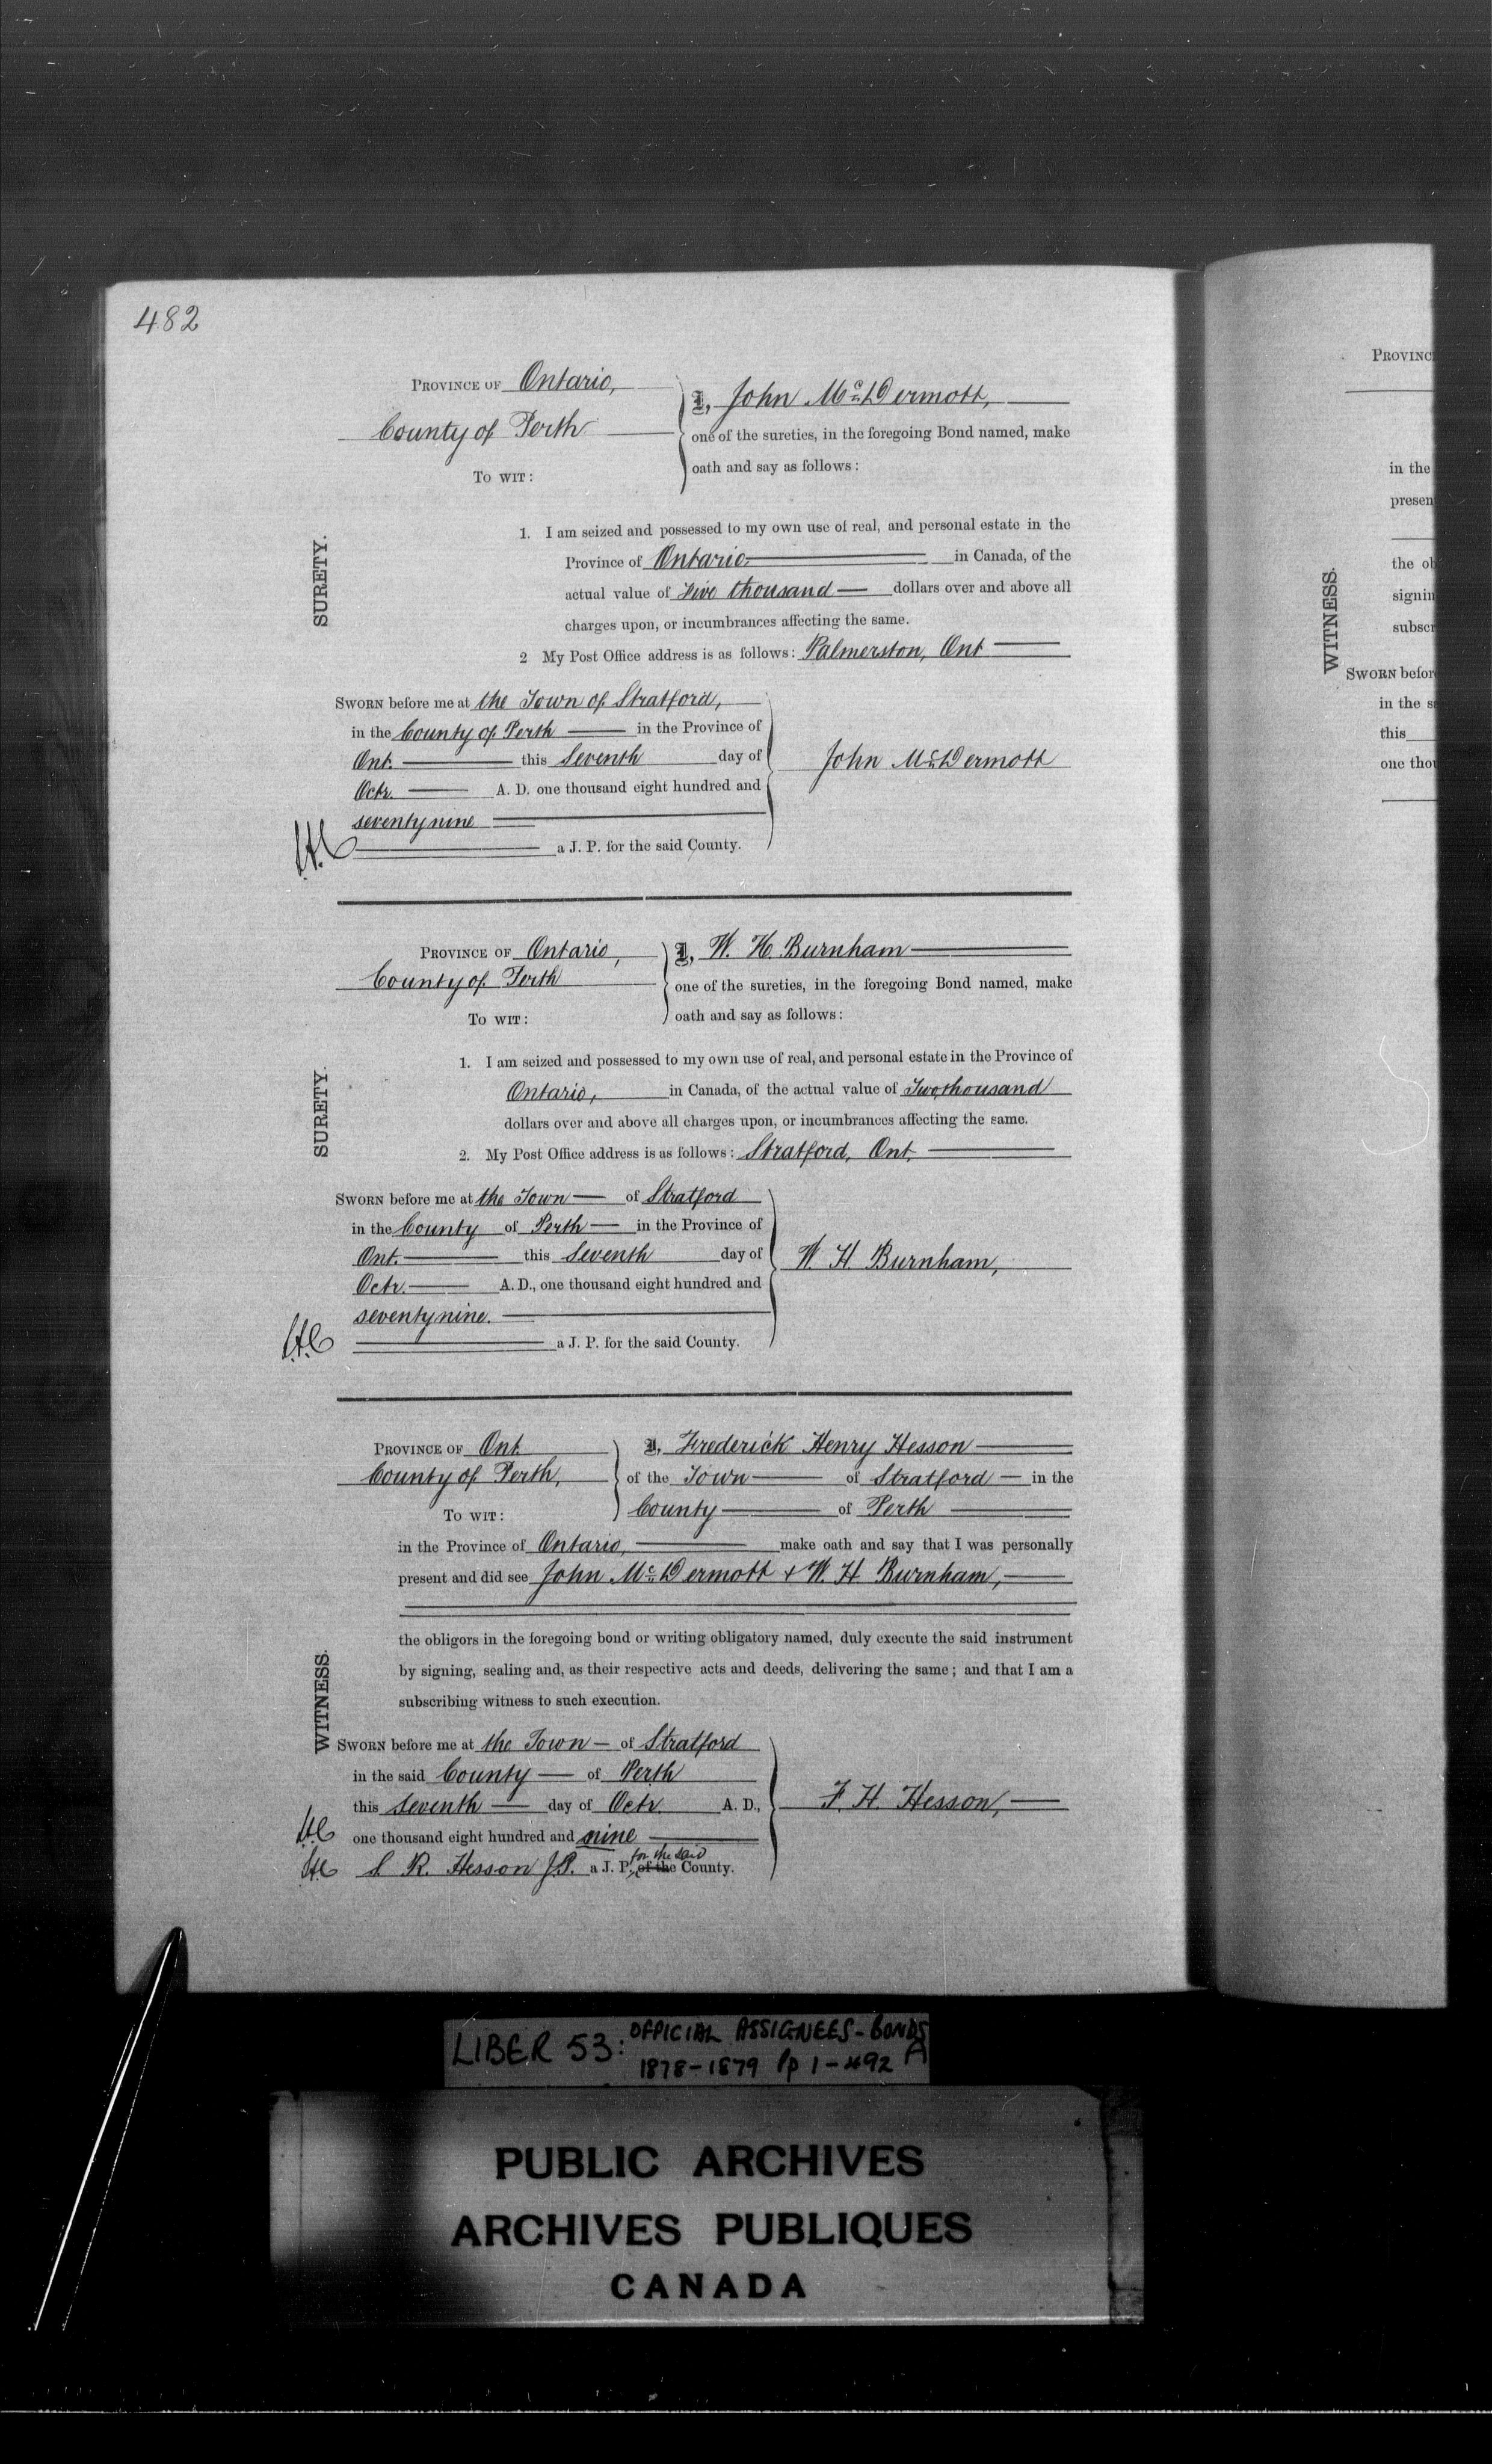 482
PROVINCE OF Ontario,
County of Perth
TO WIT:
I, John McDermott,
one of the sureties, in the foregoing Bond named, make
oath and say as follows:
SURETY.
1. I am seized and possessed to my own use of real, and personal estate in the
Province of Ontario in Canada, of the
actual value of Five thousand dollars over and above all
charges upon, or incumbrances affecting the same.
2 My Post Office address is as follows: Palmerston, Ont
SWORN before me at the Town of Stratford,
in the County of Perth in the Province of
Ont. this Seventh day of
Octr. A. D. one thousand eight hundred and
seventy nine
a J. P. for the said County.
John McDermott
PROVINCE OF Ontario,
County of Perth
TO WIT:
I, W. H. Burnham
one of the sureties, in the foregoing Bond named, make
oath and say as follows:
SURETY.
1. I am seized and possessed to my own use of real, and personal estate in the Province of
Ontario, in Canada, of the actual value of Two thousand
dollars over and above all charges upon, or incumbrances affecting the same.
2. My Post Office address is as follows: Stratford, Ont.
SWORN before me at the Town of Stratford
in the County of Perth in the Province of
Ont. this Seventh day of
Octr. A. D., one thousand eight hundred and
seventy nine.
a J. P. for the said County.
W H Burnham,
PROVINCE OF Ont
County of Perth,
TO WIT:
I, Frederick Henry Hesson
of the Town of Stratford in the
County of Perth
in the Province of Ontario, make oath and say that I was personally
present and did see John McDermott & W. H. Burnham,
the obligors in the foregoing bond or writing obligatory named, duly execute the said instrument
by signing, sealing and, as their respective acts and deeds, delivering the same; and that I am a
subscribing witness to such execution.
WITNESS.
SWORN before me at the Town of Stratford
in the said County of Perth
this Seventh day of Octr. A. D.,
one thousand eight hundred and nine
for the said
S R. Hesson J.P. a J. P. of the County.
F. H. Hesson,
PROVINC
in the
presen
the ob
signin
subscr
WITNESS.
SWORN befor
in the s
this
one thou
LIBER 53: OFFICIAL ASSIGNEES-BONDS
1878-1879 Pp 1-492 A
PUBLIC ARCHIVES
ARCHIVES PUBLIQUES
CANADA